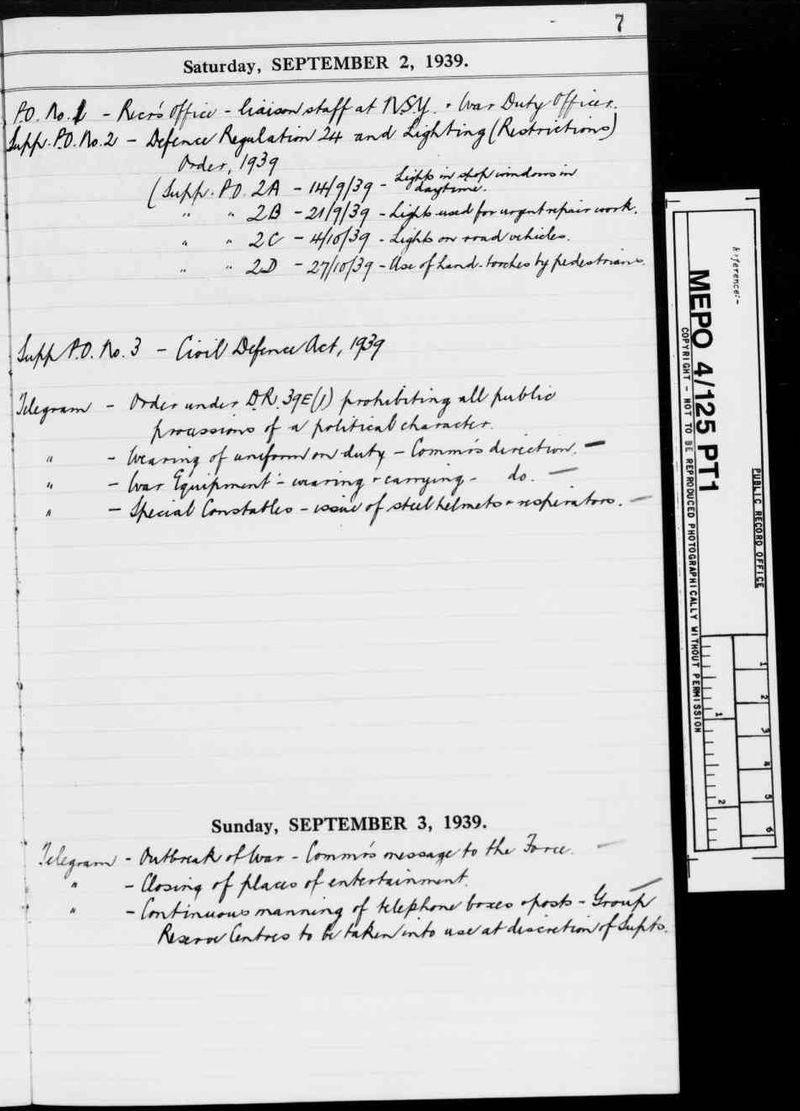 7
Saturday, SEPTEMBER 2, 1939.
P.O. No. 1 - Recr's Office - liaison staff at N.S.Y. + War Duty Officer.
Supp. P.O. No. 2 - Defence Regulation 24 and Lighting (Restrictions)
Order, 1939
(Supp. P.O. 2A - 14/9/39 - Lights in shop windows in
daytime.
" " 2B - 21/9/39 - Lights used for urgent repair work.
" " 2C - 4/10/39 - Lights on road vehicles.
" " 2D - 27/10/39 - Use of hand-torches by pedestrians.
Supp P.O. No. 3 - Civil Defence Act, 1939
Telegram - Order under D.R. 39E(1) prohibiting all public
processions of a political character.
" - Wearing of uniform on duty - Commr's direction. -
" - War Equipment - wearing + carrying - do. -
" - Special Constables - issue of steel helmets + respirators. -
Sunday, SEPTEMBER 3, 1939.
Telegram - Outbreak of War - Commr's message to the Force. -
" - Closing of places of entertainment.
" - Continuous manning of telephone boxes + posts - Group
Reserve Centres to be taken into use at discretion of Supts.
PUBLIC RECORD OFFICE
Reference:-
MEPO 4/125 PT1
COPYRIGHT - NOT TO BE REPRODUCED PHOTOGRAPHICALLY WITHOUT PERMISSION
1 2 3 4 5 6
1 2